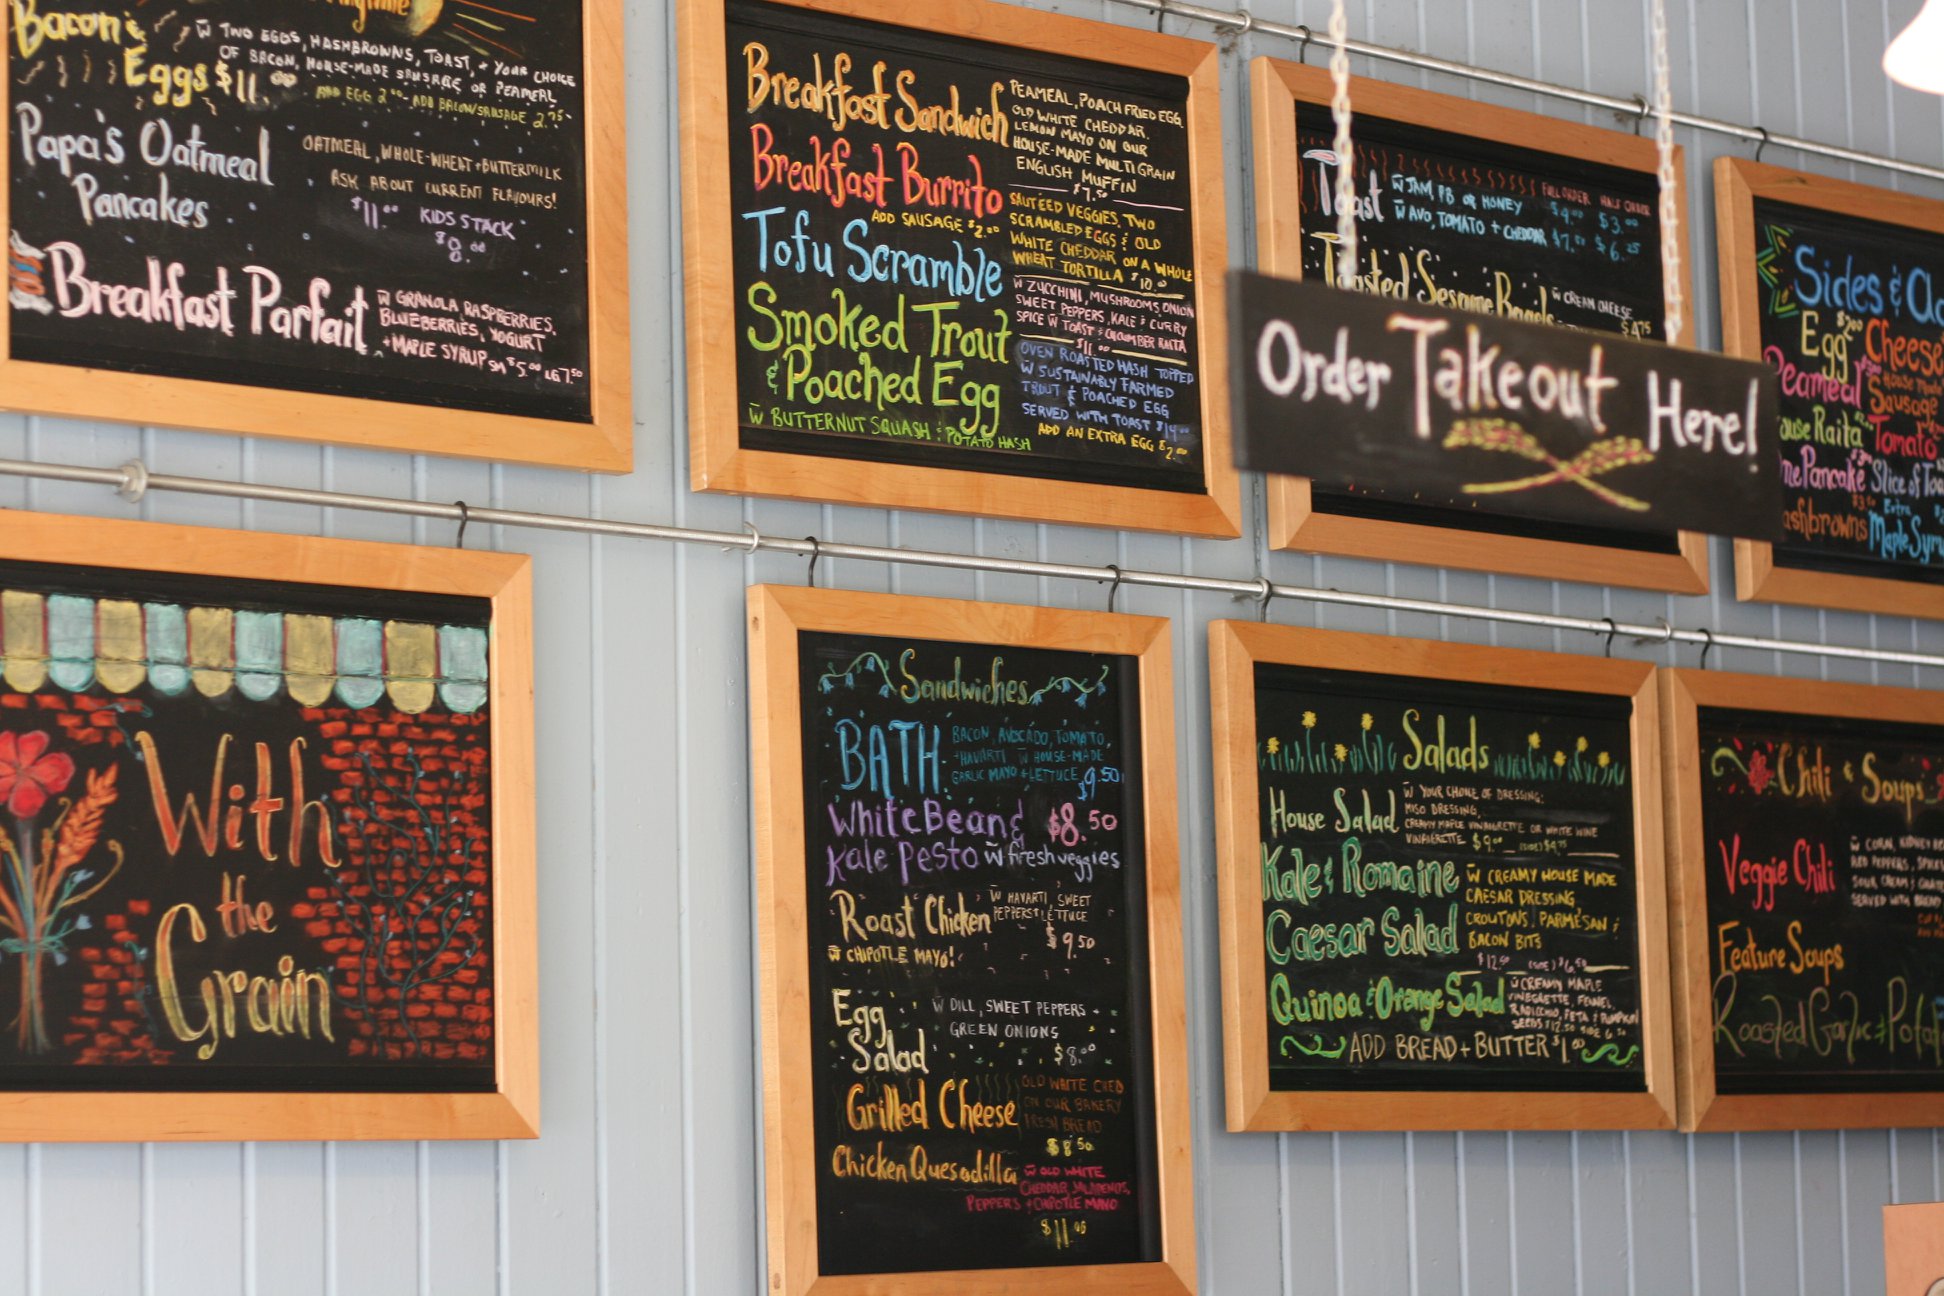 Bacon &
Eggs $11.00
W TWO EGGS, HASHBROWNS, TOAST, + YOUR CHOICE
OF BACON, HOUSE-MADE SAUSAGE OR PEAMEAL
ADD EGG 2.00 - ADD BACON/SAUSAGE 2.75
Papa's Oatmeal
Pancakes
OATMEAL, WHOLE-WHEAT + BUTTERMILK
ASK ABOUT CURRENT FLAVOURS!
$11.00 KIDS STACK
$8.00
Breakfast Parfait
W GRANOLA, RASPBERRIES,
BLUEBERRIES, YOGURT
+ MAPLE SYRUP SM $5.00 LG 7.50
Breakfast Sandwich
PEAMEAL, POACH FRIED EGG,
OLD WHITE CHEDDAR,
LEMON MAYO ON OUR
HOUSE-MADE MULTIGRAIN
ENGLISH MUFFIN
$7.50
Breakfast Burrito
ADD SAUSAGE $2.00
SAUTEED VEGGIES, TWO
SCRAMBLED EGGS & OLD
WHITE CHEDDAR ON A WHOLE
WHEAT TORTILLA $10.00
Tofu Scramble
W ZUCCHINI, MUSHROOMS, ONION
SWEET PEPPERS, KALE & CURRY
SPICE W TOAST & CUCUMBER RAITA
$11.00
Smoked Trout
& Poached Egg
W BUTTERNUT SQUASH & POTATO HASH
OVEN ROASTED HASH TOPPED
W SUSTAINABLY FARMED
TROUT & POACHED EGG
SERVED WITH TOAST $14.00
ADD AN EXTRA EGG $2.00
FULL ORDER HALF ORDER
Toast
W JAM, PB OR HONEY $4.00 $3.00
W AVO, TOMATO + CHEDDAR $7.00 $6.25
Toasted Sesame Bagels
W CREAM CHEESE
$4.75
Order Takeout Here!
Sides &
Egg $2.00
Cheese
Peameal
House Made
Sausage
Raita
Tomato
Pancake
Slice of
Extra
Maple
With
the
Grain
Sandwiches
BATH
BACON, AVOCADO, TOMATO,
+ HAVARTI W HOUSE-MADE
GARLIC MAYO + LETTUCE $9.50
White Bean & $8.50
Kale Pesto W fresh veggies
Roast Chicken
W HAVARTI, SWEET
PEPPERS + LETTUCE
$9.50
W CHIPOTLE MAYO!
Egg
Salad
W DILL, SWEET PEPPERS +
GREEN ONIONS
$8.00
Grilled Cheese
OLD WHITE CHED
ON OUR BAKERY
FRESH BREAD
$8.50
Chicken Quesadilla
W OLD WHITE
CHEDDAR, JALAPENOS,
PEPPERS + CHIPOTLE MAYO
$11.00
Salads
House Salad
W YOUR CHOICE OF DRESSING:
MISO DRESSING,
CREAMY MAPLE VINAIGRETTE OR WHITE WINE
VINAIGRETTE $9.00 (SIDE) $4.75
Kale & Romaine
Caesar Salad
W CREAMY HOUSE MADE
CAESAR DRESSING,
CROUTONS, PARMESAN &
BACON BITS
$12.50 (SIDE) $6.50
Quinoa & Orange Salad
W CREAMY MAPLE
VINEGRETTE, FENNEL,
RADICCHIO, FETA & PUMPKIN
SEEDS $12.50 SIDE 6.50
ADD BREAD + BUTTER $1.00
Chili & Soups
Veggie Chili
W CORN, KIDNEY
RED PEPPERS,
SOUR CREAM &
SERVED WITH BREAD
Feature Soups
Roasted Garlic &